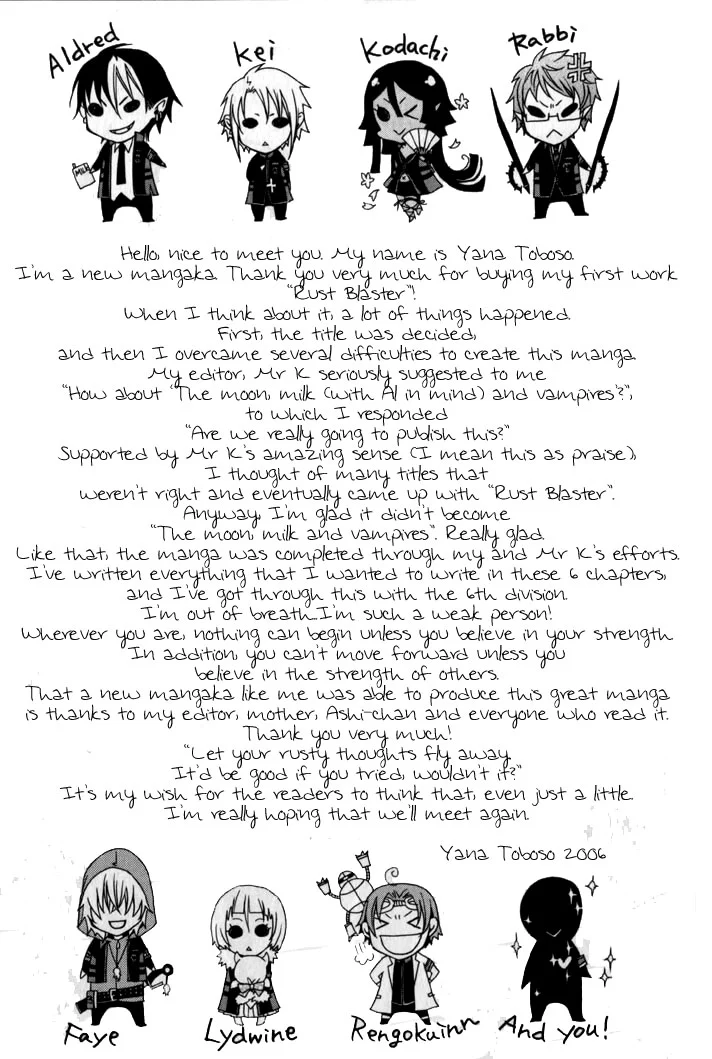 Aldred
Kei
Kodachi
Rabbi
MILK
Hello, nice to meet you. My name is Yana Toboso.
I'm a new mangaka. Thank you very much for buying my first work
"Rust Blaster"!
When I think about it, a lot of things happened.
First, the title was decided,
and then I overcame several difficulties to create this manga.
My editor, Mr K seriously suggested to me
"How about 'The moon, milk (with Al in mind) and vampires'?",
to which I responded
"Are we really going to publish this?"
Supported by Mr K's amazing sense (I mean this as praise),
I thought of many titles that
weren't right and eventually came up with "Rust Blaster".
Anyway, I'm glad it didn't become
"The moon, milk and vampires". Really glad.
Like that, the manga was completed through my and Mr K's efforts.
I've written everything that I wanted to write in these 6 chapters,
and I've got through this with the 6th division.
I'm out of breath...I'm such a weak person!
Wherever you are, nothing can begin unless you believe in your strength.
In addition, you can't move forward unless you
believe in the strength of others.
That a new mangaka like me was able to produce this great manga
is thanks to my editor, mother, Ashi-chan and everyone who read it.
Thank you very much!
"Let your rusty thoughts fly away.
It'd be good if you tried, wouldn't it?"
It's my wish for the readers to think that, even just a little.
I'm really hoping that we'll meet again.
Yana Toboso 2006
Faye
Lydwine
Rengokuinn
And you!